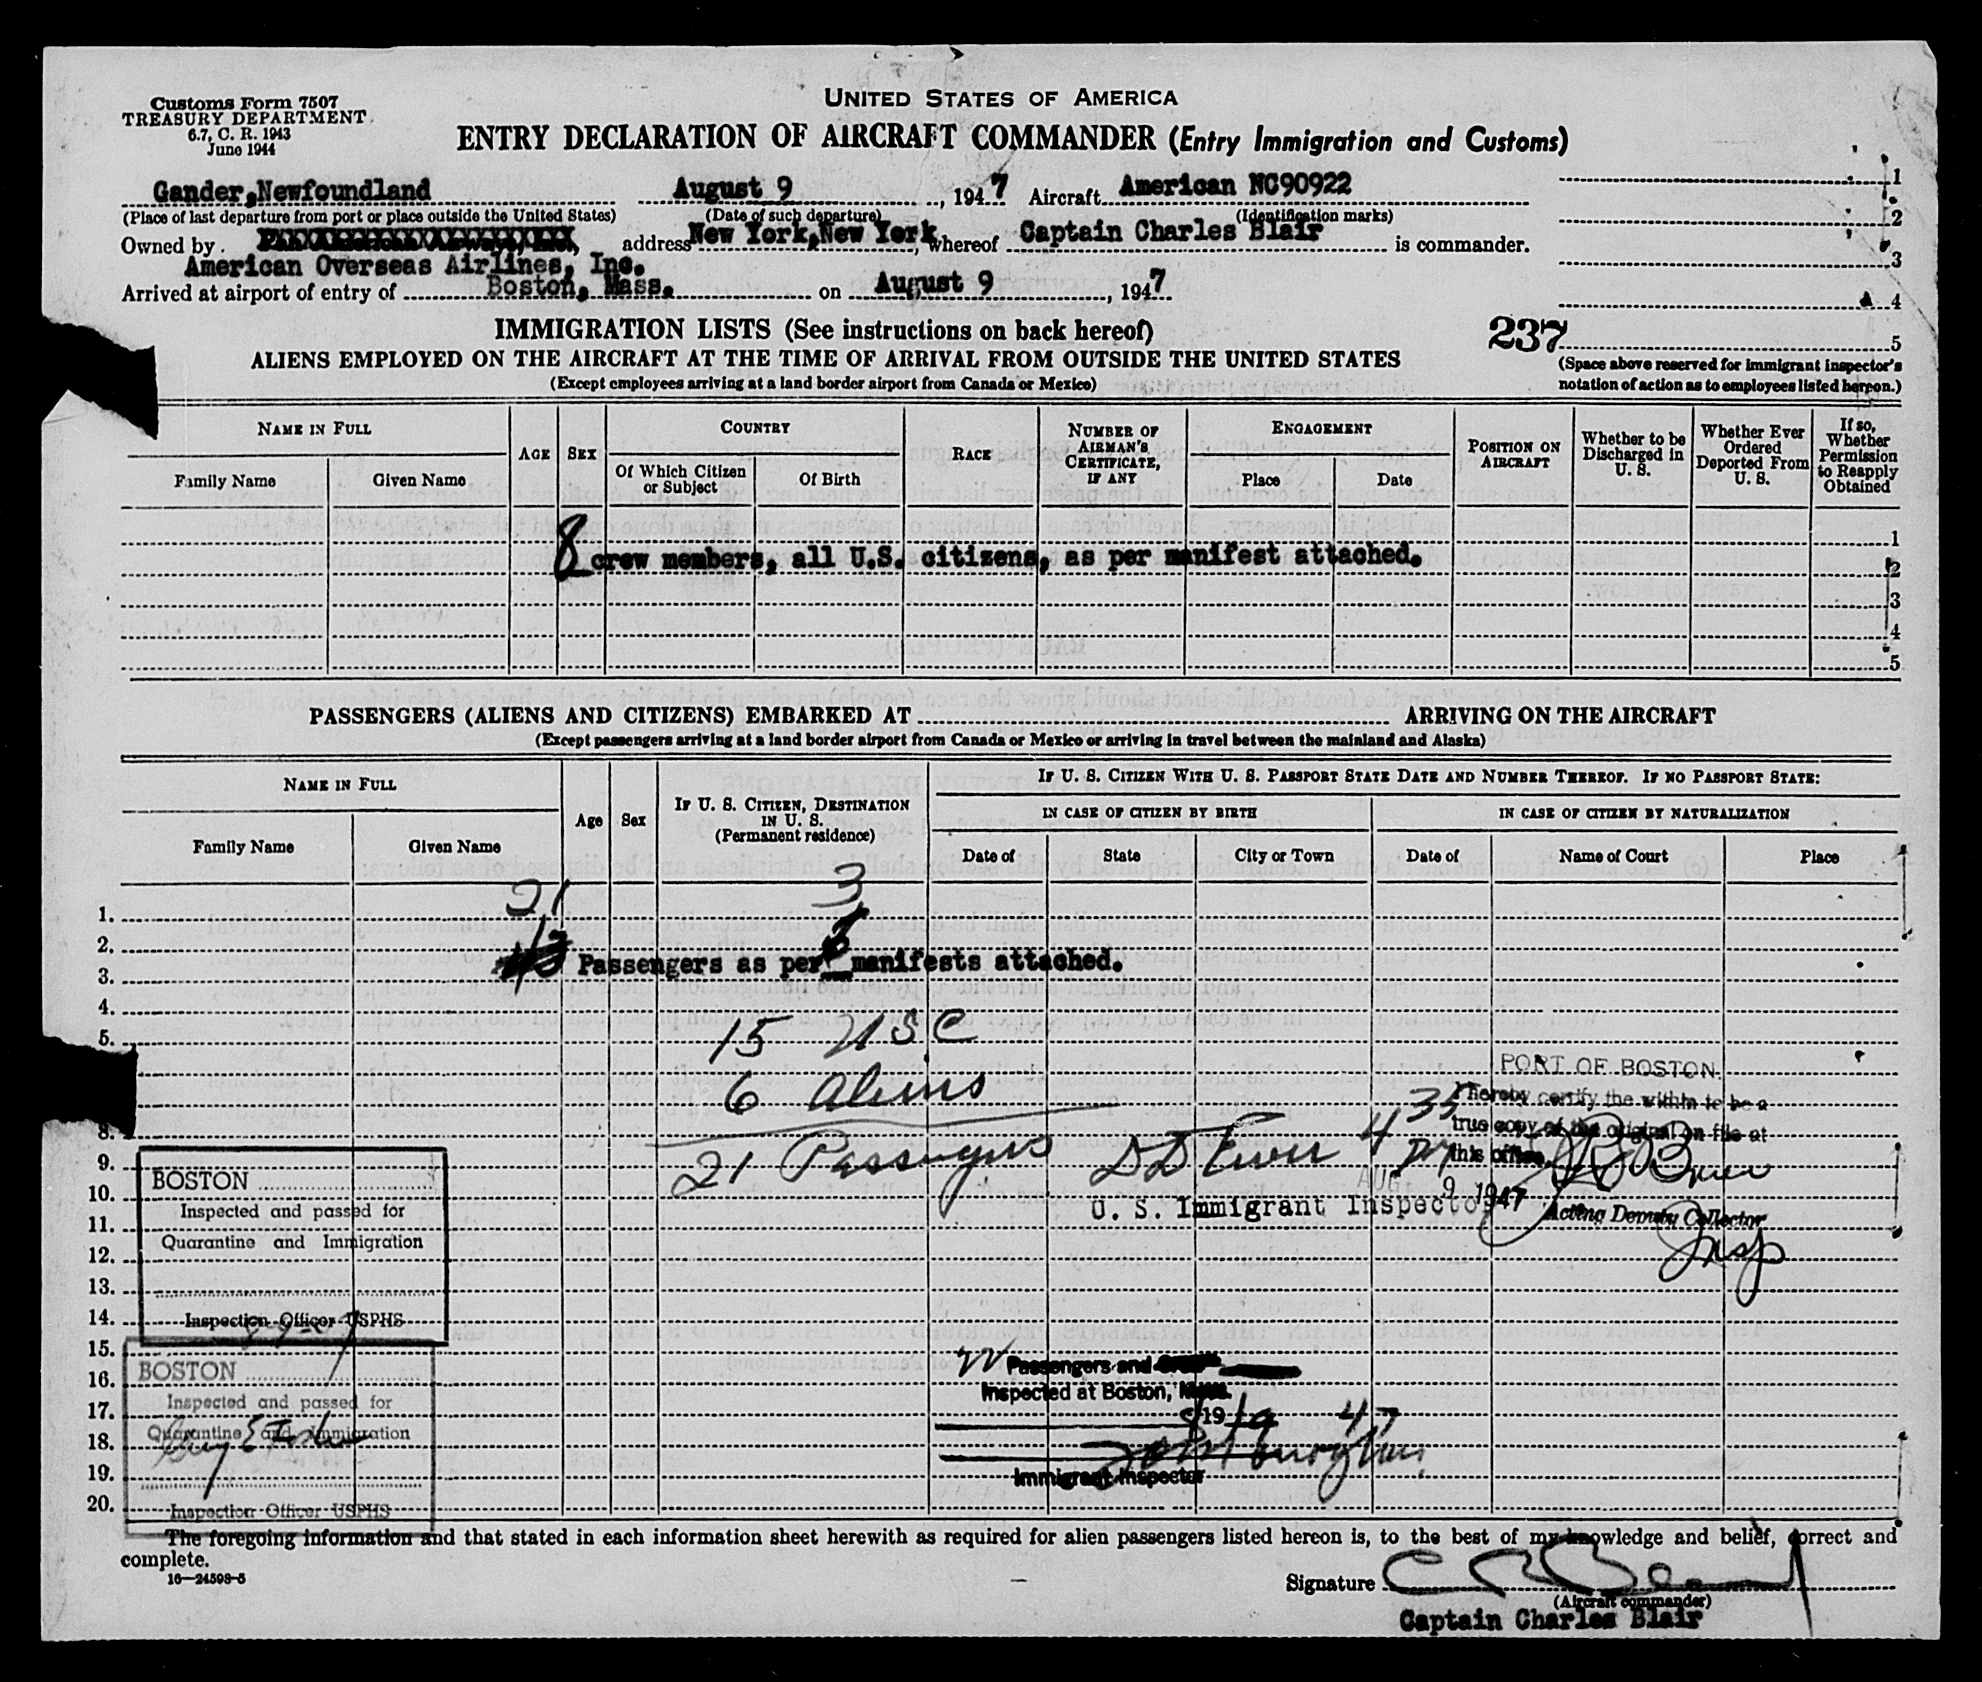 Customs Form 7507
TREASURY DEPARTMENT
6.7, C. R. 1943
June 1944
UNITED STATES OF AMERICA
ENTRY DECLARATION OF AIRCRAFT COMMANDER (Entry Immigration and Customs)
Gander, Newfoundland August 9, 1947 Aircraft American NC90922
(Place of last departure from port or place outside the United States) (Date of such departure) (Identification marks)
Owned by address New York, New York, whereof Captain Charles Blair is commander.
American Overseas Airlines, Inc.
Arrived at airport of entry of Boston, Mass. on August 9, 1947
1
2
3
4
5
237
(Space above reserved for immigrant inspector's notation of action as to employees listed hereon.)
IMMIGRATION LISTS (See instructions on back hereof)
ALIENS EMPLOYED ON THE AIRCRAFT AT THE TIME OF ARRIVAL FROM OUTSIDE THE UNITED STATES
(Except employees arriving at a land border airport from Canada or Mexico)
NAME IN FULL
Family Name Given Name
AGE SEX
COUNTRY
Of Which Citizen or Subject Of Birth
RACE
NUMBER OF AIRMAN'S CERTIFICATE, IF ANY
ENGAGEMENT
Place Date
POSITION ON AIRCRAFT
Whether to be Discharged in U. S.
Whether Ever Ordered Deported From U. S.
If so, Whether Permission to Reapply Obtained
8 crew members, all U.S. citizens, as per manifest attached.
1
2
3
4
5
PASSENGERS (ALIENS AND CITIZENS) EMBARKED AT ARRIVING ON THE AIRCRAFT
(Except passengers arriving at a land border airport from Canada or Mexico or arriving in travel between the mainland and Alaska)
NAME IN FULL
Family Name Given Name
Age Sex
IF U. S. CITIZEN, DESTINATION IN U. S.
(Permanent residence)
IF U. S. CITIZEN WITH U. S. PASSPORT STATE DATE AND NUMBER THEREOF. IF NO PASSPORT STATE:
IN CASE OF CITIZEN BY BIRTH IN CASE OF CITIZEN BY NATURALIZATION
Date of State City or Town Date of Name of Court Place
21 3
1.
2.
3. Passengers as per manifests attached.
4.
5.
15 USC
6 Aliens
21 Passengers
U. S. Immigrant Inspector
PORT OF BOSTON
I hereby certify the within to be a
true copy of the original on file at
this office
AUG 9 1947
Acting Deputy Collector
Insp
8.
9.
10.
11.
12.
13.
14.
15.
16.
17.
18.
19.
20.
BOSTON
Inspected and passed for
Quarantine and Immigration
Inspection Officer USPHS
BOSTON
Inspected and passed for
Quarantine and Immigration
Inspection Officer USPHS
Passengers and
Inspected at Boston, Mass.
8/9 19 47
Immigrant Inspector
The foregoing information and that stated in each information sheet herewith as required for alien passengers listed hereon is, to the best of my knowledge and belief, correct and
complete.
16—24598-5
Signature
(Aircraft commander)
Captain Charles Blair